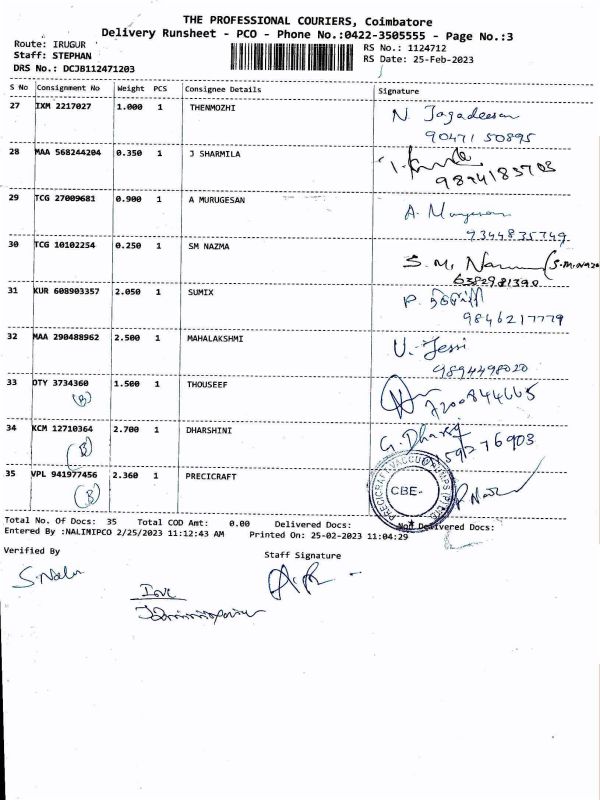 THE PROFESSIONAL COURIERS, Coimbatore
Delivery Runsheet - PCO - Phone No.:0422-3505555 - Page No.:3
Route: IRUGUR
RS No.: 1124712
Staff: STEPHAN
RS Date: 25-Feb-2023
DRS No.: DCJB112471203
S No Consignment No Weight PCS Consignee Details Signature
27 IXM 2217027 1.000 1 THENMOZHI N. Jagadeesan
90471 50895
28 MAA 568244204 0.350 1 J SHARMILA
9894183703
29 TCG 27009681 0.900 1 A MURUGESAN A. Murugesan
9344835749
30 TCG 10102254 0.250 1 SM NAZMA S.M.
6382981390
31 KUR 608903357 2.050 1 SUMIX P.
9846217779
32 MAA 290488962 2.500 1 MAHALAKSHMI U. Jessi
9894498020
33 DTY 3734360 1.500 1 THOUSEEF
(B) 7200844665
34 KCM 12710364 2.700 1 DHARSHINI G. Dharsy
(B)
35 VPL 941977456 2.360 1 PRECICRAFT CBE-
(B)
Total No. Of Docs: 35 Total COD Amt: 0.00 Delivered Docs: Non Delivered Docs:
Entered By :NALIMIPCO 2/25/2023 11:12:43 AM Printed On: 25-02-2023 11:04:29
Verified By
Staff Signature